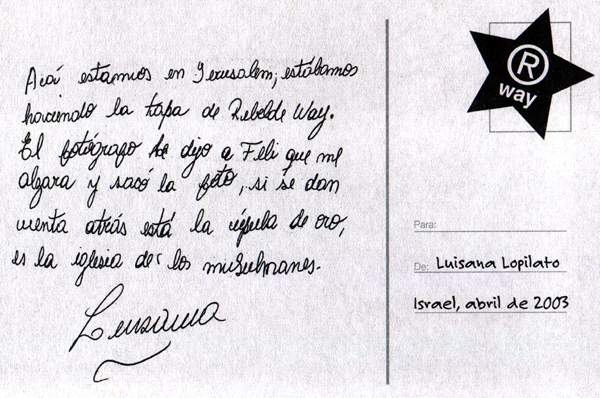 Acá estamos en Jerusalem; estábamos
haciendo la tapa de Rebelde Way.
El fotógrafo le dijo a Feli que me
alzara y sacó la foto, si se dan
cuenta atrás está la cúpula de oro,
es la iglesia de los musulmanes.
Luisana
®
way
Para:
De: Luisana Lopilato
Israel, abril de 2003